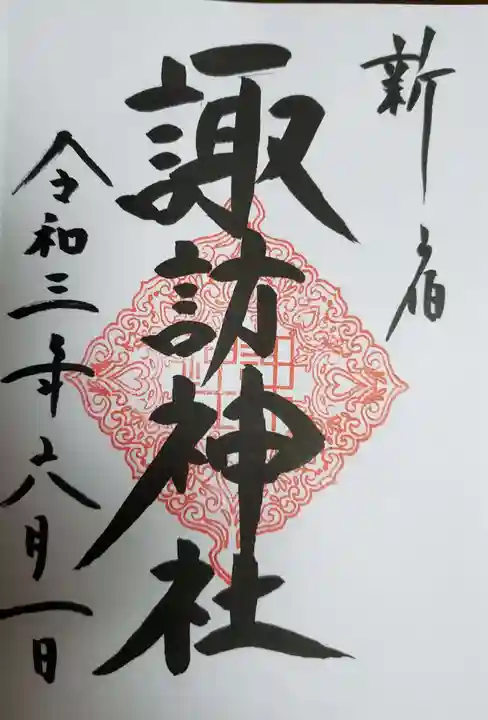 新宿
諏訪神社
令和三年六月一日